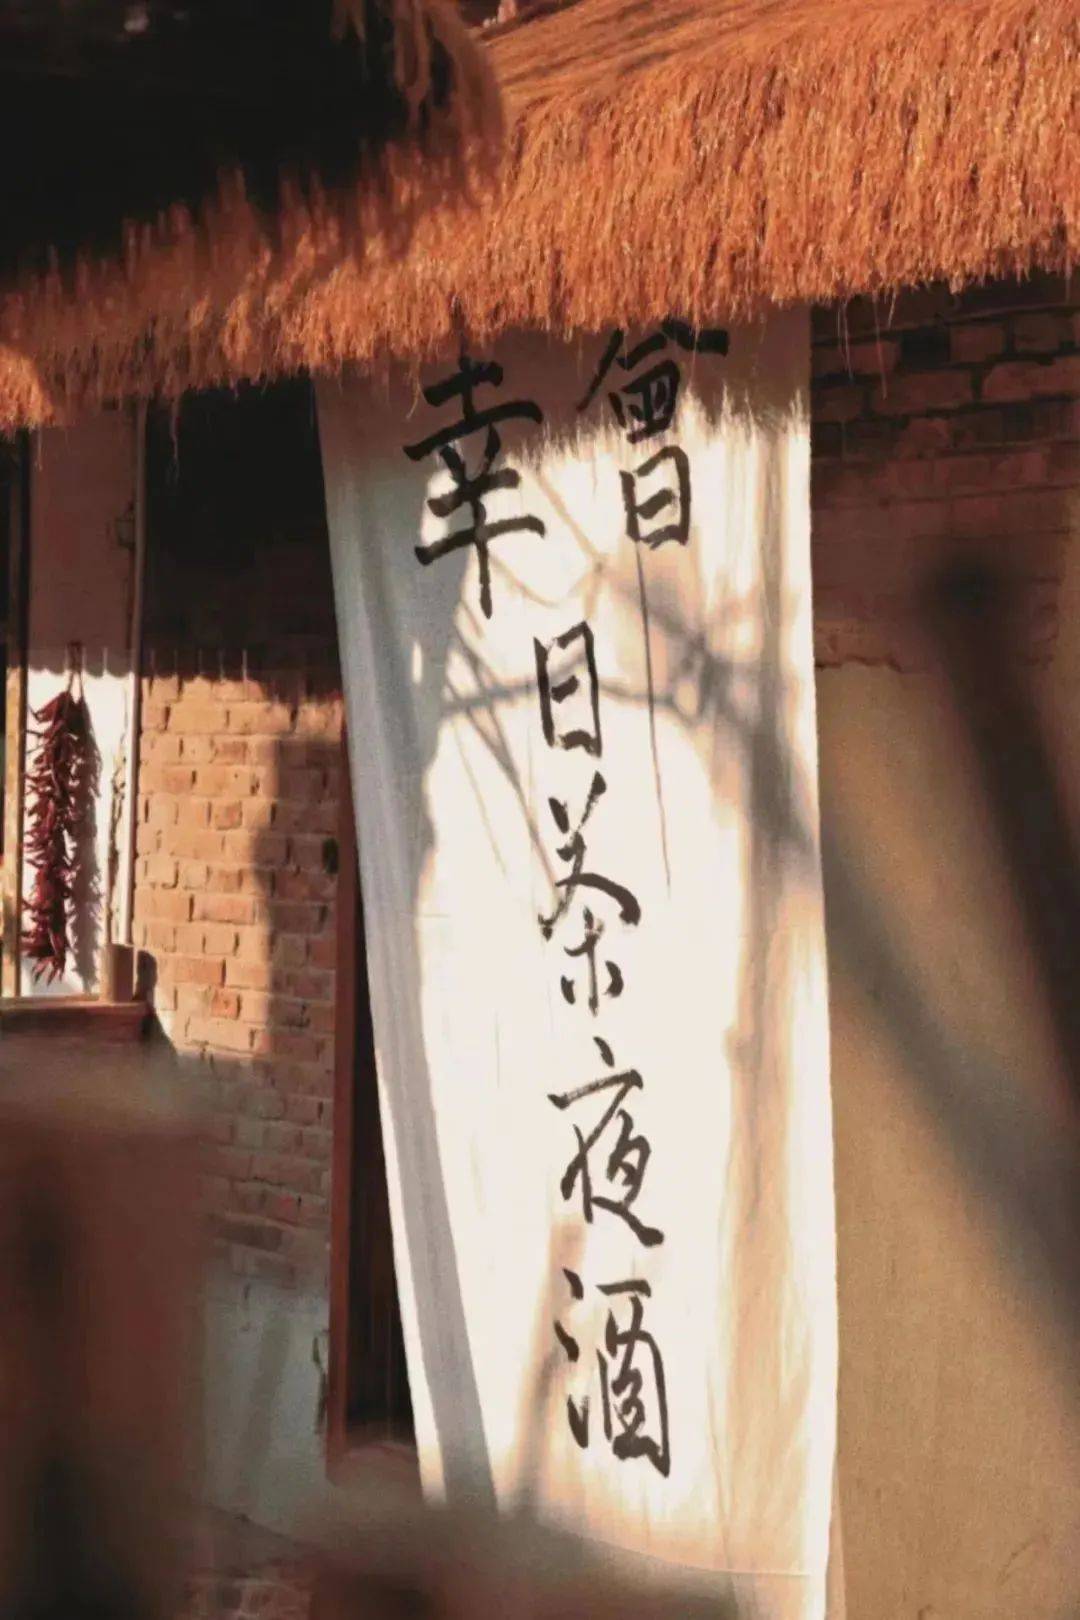 幸會
日茶夜酒